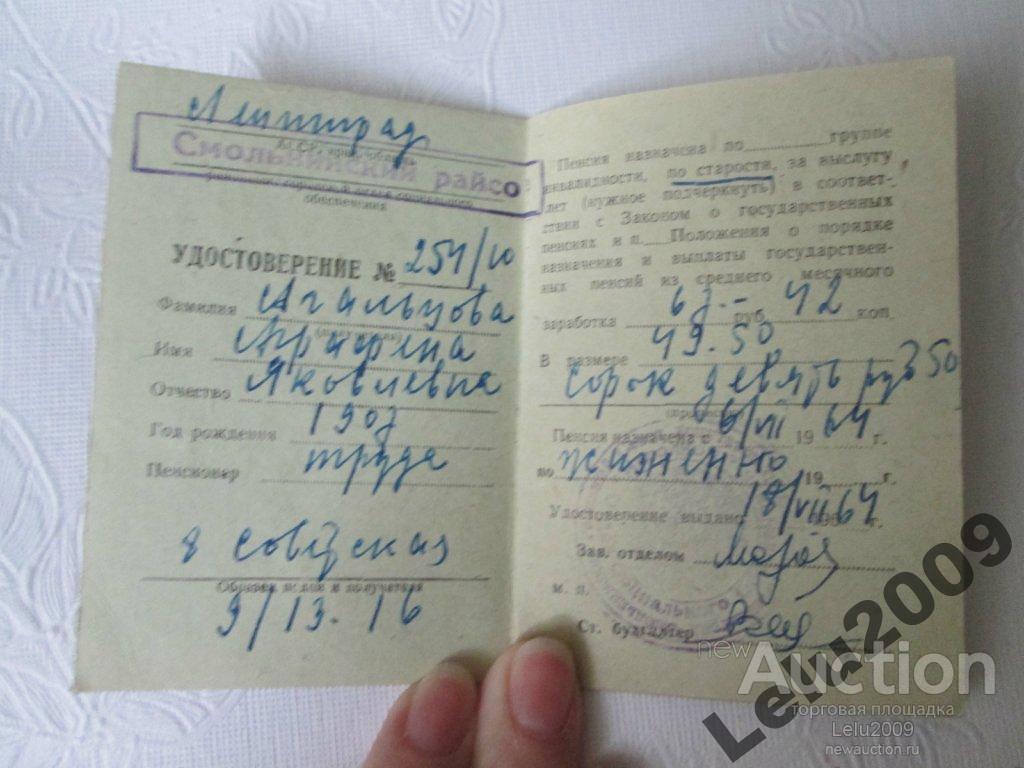 Ленинград
Смольнинский райсо
обеспечения
УДОСТОВЕРЕНИЕ № 251/10
Фамилия Агальцова
Имя Аграфена
Отчество Яковлевна
Год рождения 1907
Пенсионер труда
8 Советская
9/13-16
Пенсия назначена по группе
инвалидности, по старости, за выслугу
лет (нужное подчеркнуть) в соответ-
ствии с Законом о государственных
пенсиях и п. Положения о порядке
назначения и выплаты государствен-
ных пенсий из среднего месячного
заработка руб. 42 коп.
В размере 49.50
сорок девять руб 50
Пенсия назначена с 6/VII 1964 г.
по жизненно 19 г.
Удостоверение выдано 18/VII 1964 г.
Зав. отделом
м. п.
Ст. бухгалтер
newAuction
торговая площадка
Lelu2009
newauction.ru
Lelu2009